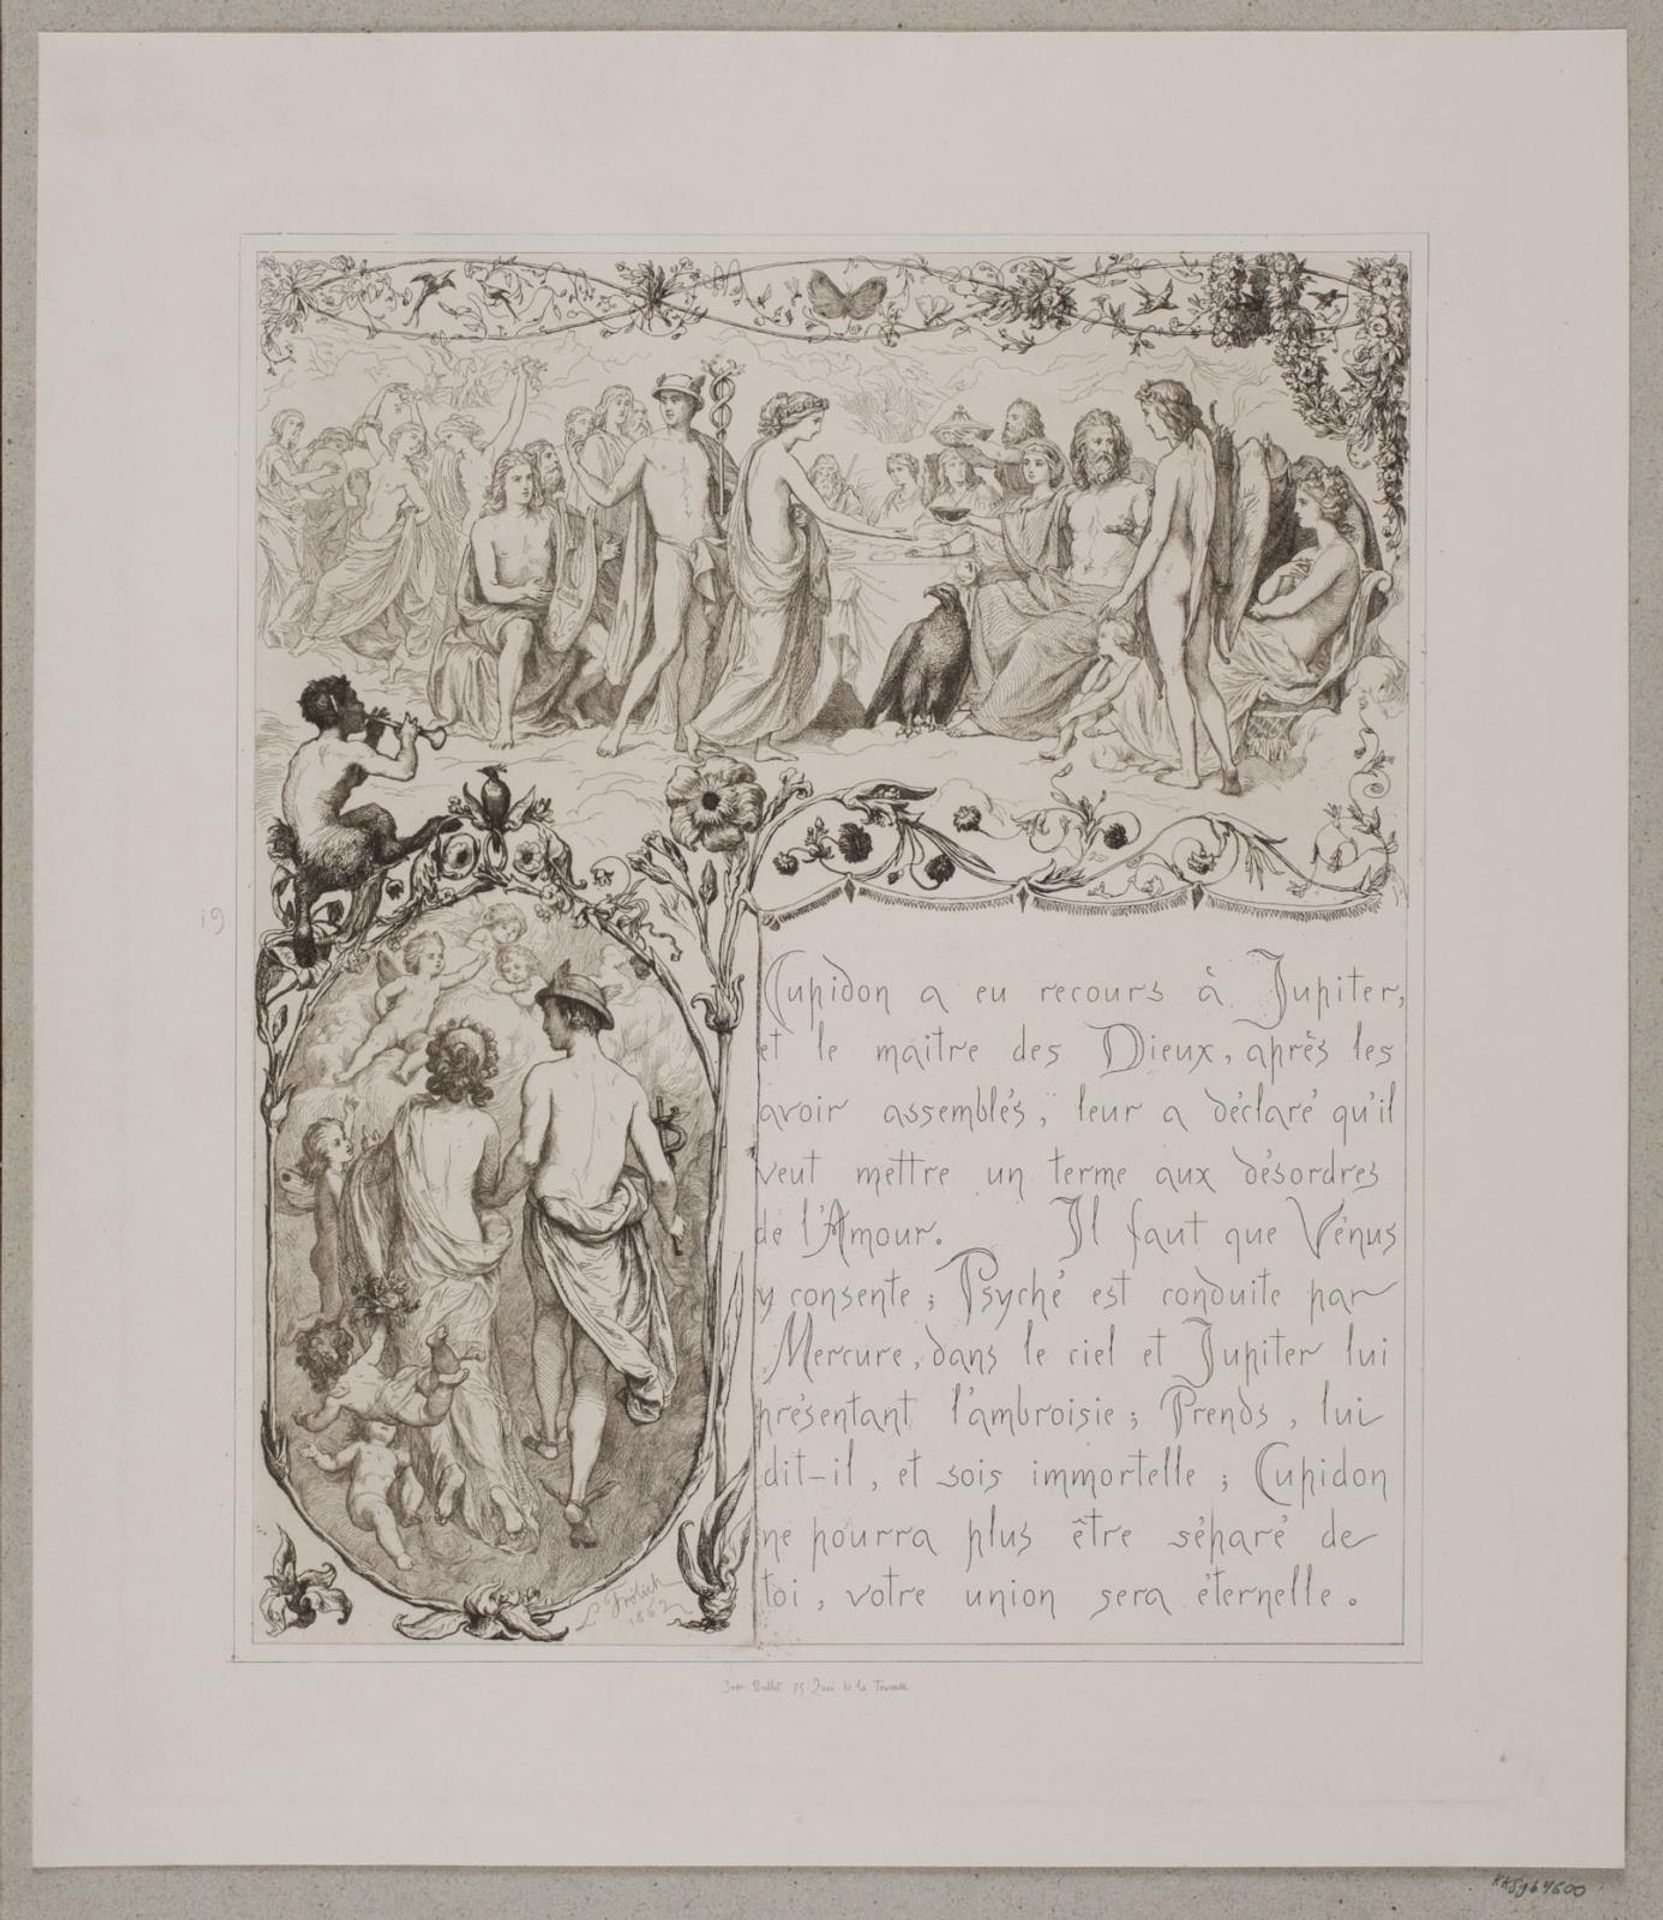 19
Cupidon a eu recours à Jupiter,
et le maître des Dieux, après les
avoir assemblés, leur a déclaré qu'il
veut mettre un terme aux désordres
de l'Amour. Il faut que Vénus
y consente; Psyché est conduite par
Mercure, dans le ciel et Jupiter lui
présentant l'ambroisie; Prends, lui
dit-il, et sois immortelle; Cupidon
ne pourra plus être séparé de
toi, votre union sera éternelle.
L Frölich
1862
Quai de la